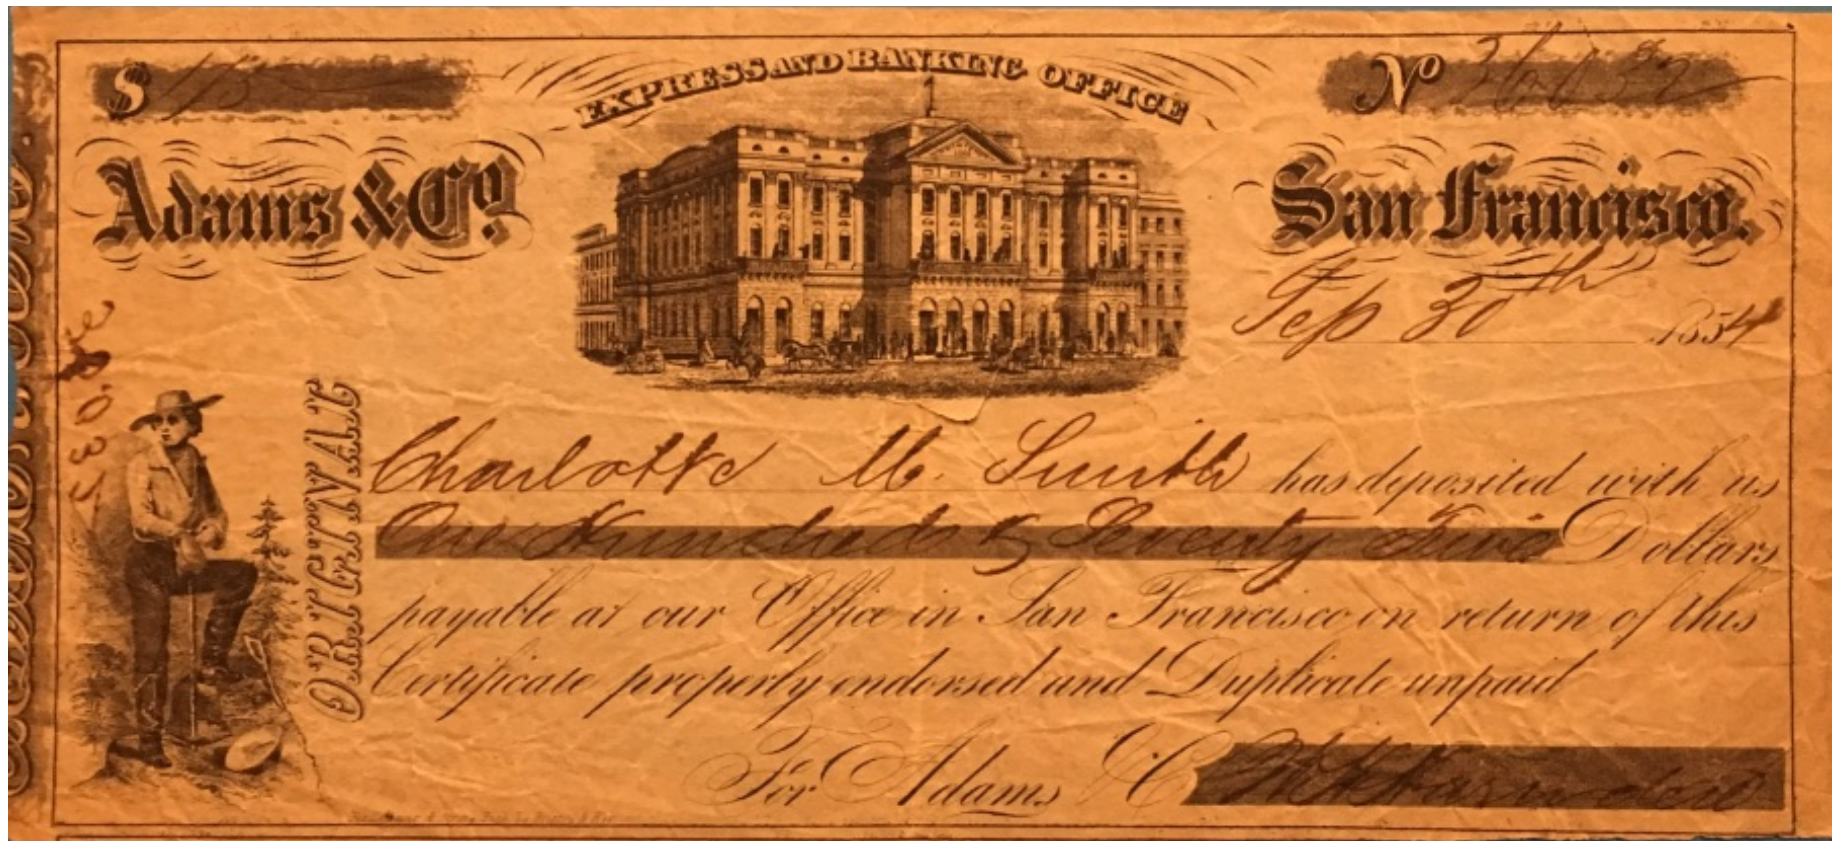 EXPRESS AND BANKING OFFICE
$
No
Adams & Co.
San Francisco.
Sep 30th 1854
ORIGINAL
Charlotte M. Smith has deposited with us
One Hundred & Seventy Five Dollars
payable at our Office in San Francisco on return of this
Certificate properly endorsed and Duplicate unpaid
For Adams & C